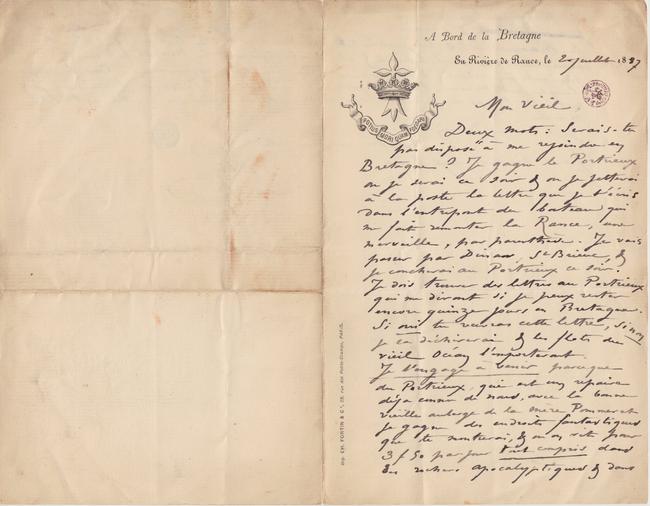 A Bord de la Bretagne
En Rivière de Rance, le 20 juillet 1897
POTIUS MORI QUAM FOEDARI
Mon Vieil
Deux mots : Serais-tu
pas disposé à me rejoindre en
Bretagne ? Je gagne le Portrieux
où je serai ce soir & où je jetterai
à la poste la lettre que je t'écris
dans l'entrepont du bateau qui
me fait remonter la Rance, une
merveille, par parenthèse. Je vais
passer par Dinan, St Brieuc, &
je coucherai au Portrieux ce soir.
Je dois trouver des lettres au Portrieux
qui me diront si je peux rester
encore quinze jours en Bretagne.
Si oui tu verras cette lettre, si non
je la déchirerai & les flots du
vieil Océan l'emporteront.
Je t'engage à venir parce que
du Portrieux, qui est un repaire
déjà connu de nous, avec la bonne
vieille auberge de la mère Pommeret
je gagne des endroits fantastiques
que te montrerai, & où on vit pour
3 f 50 par jour tout compris dans
des rochers apocalyptiques & dans
Imp. CH. FORTIN & Cie, 59, rue des Petits-Champs, PARIS.